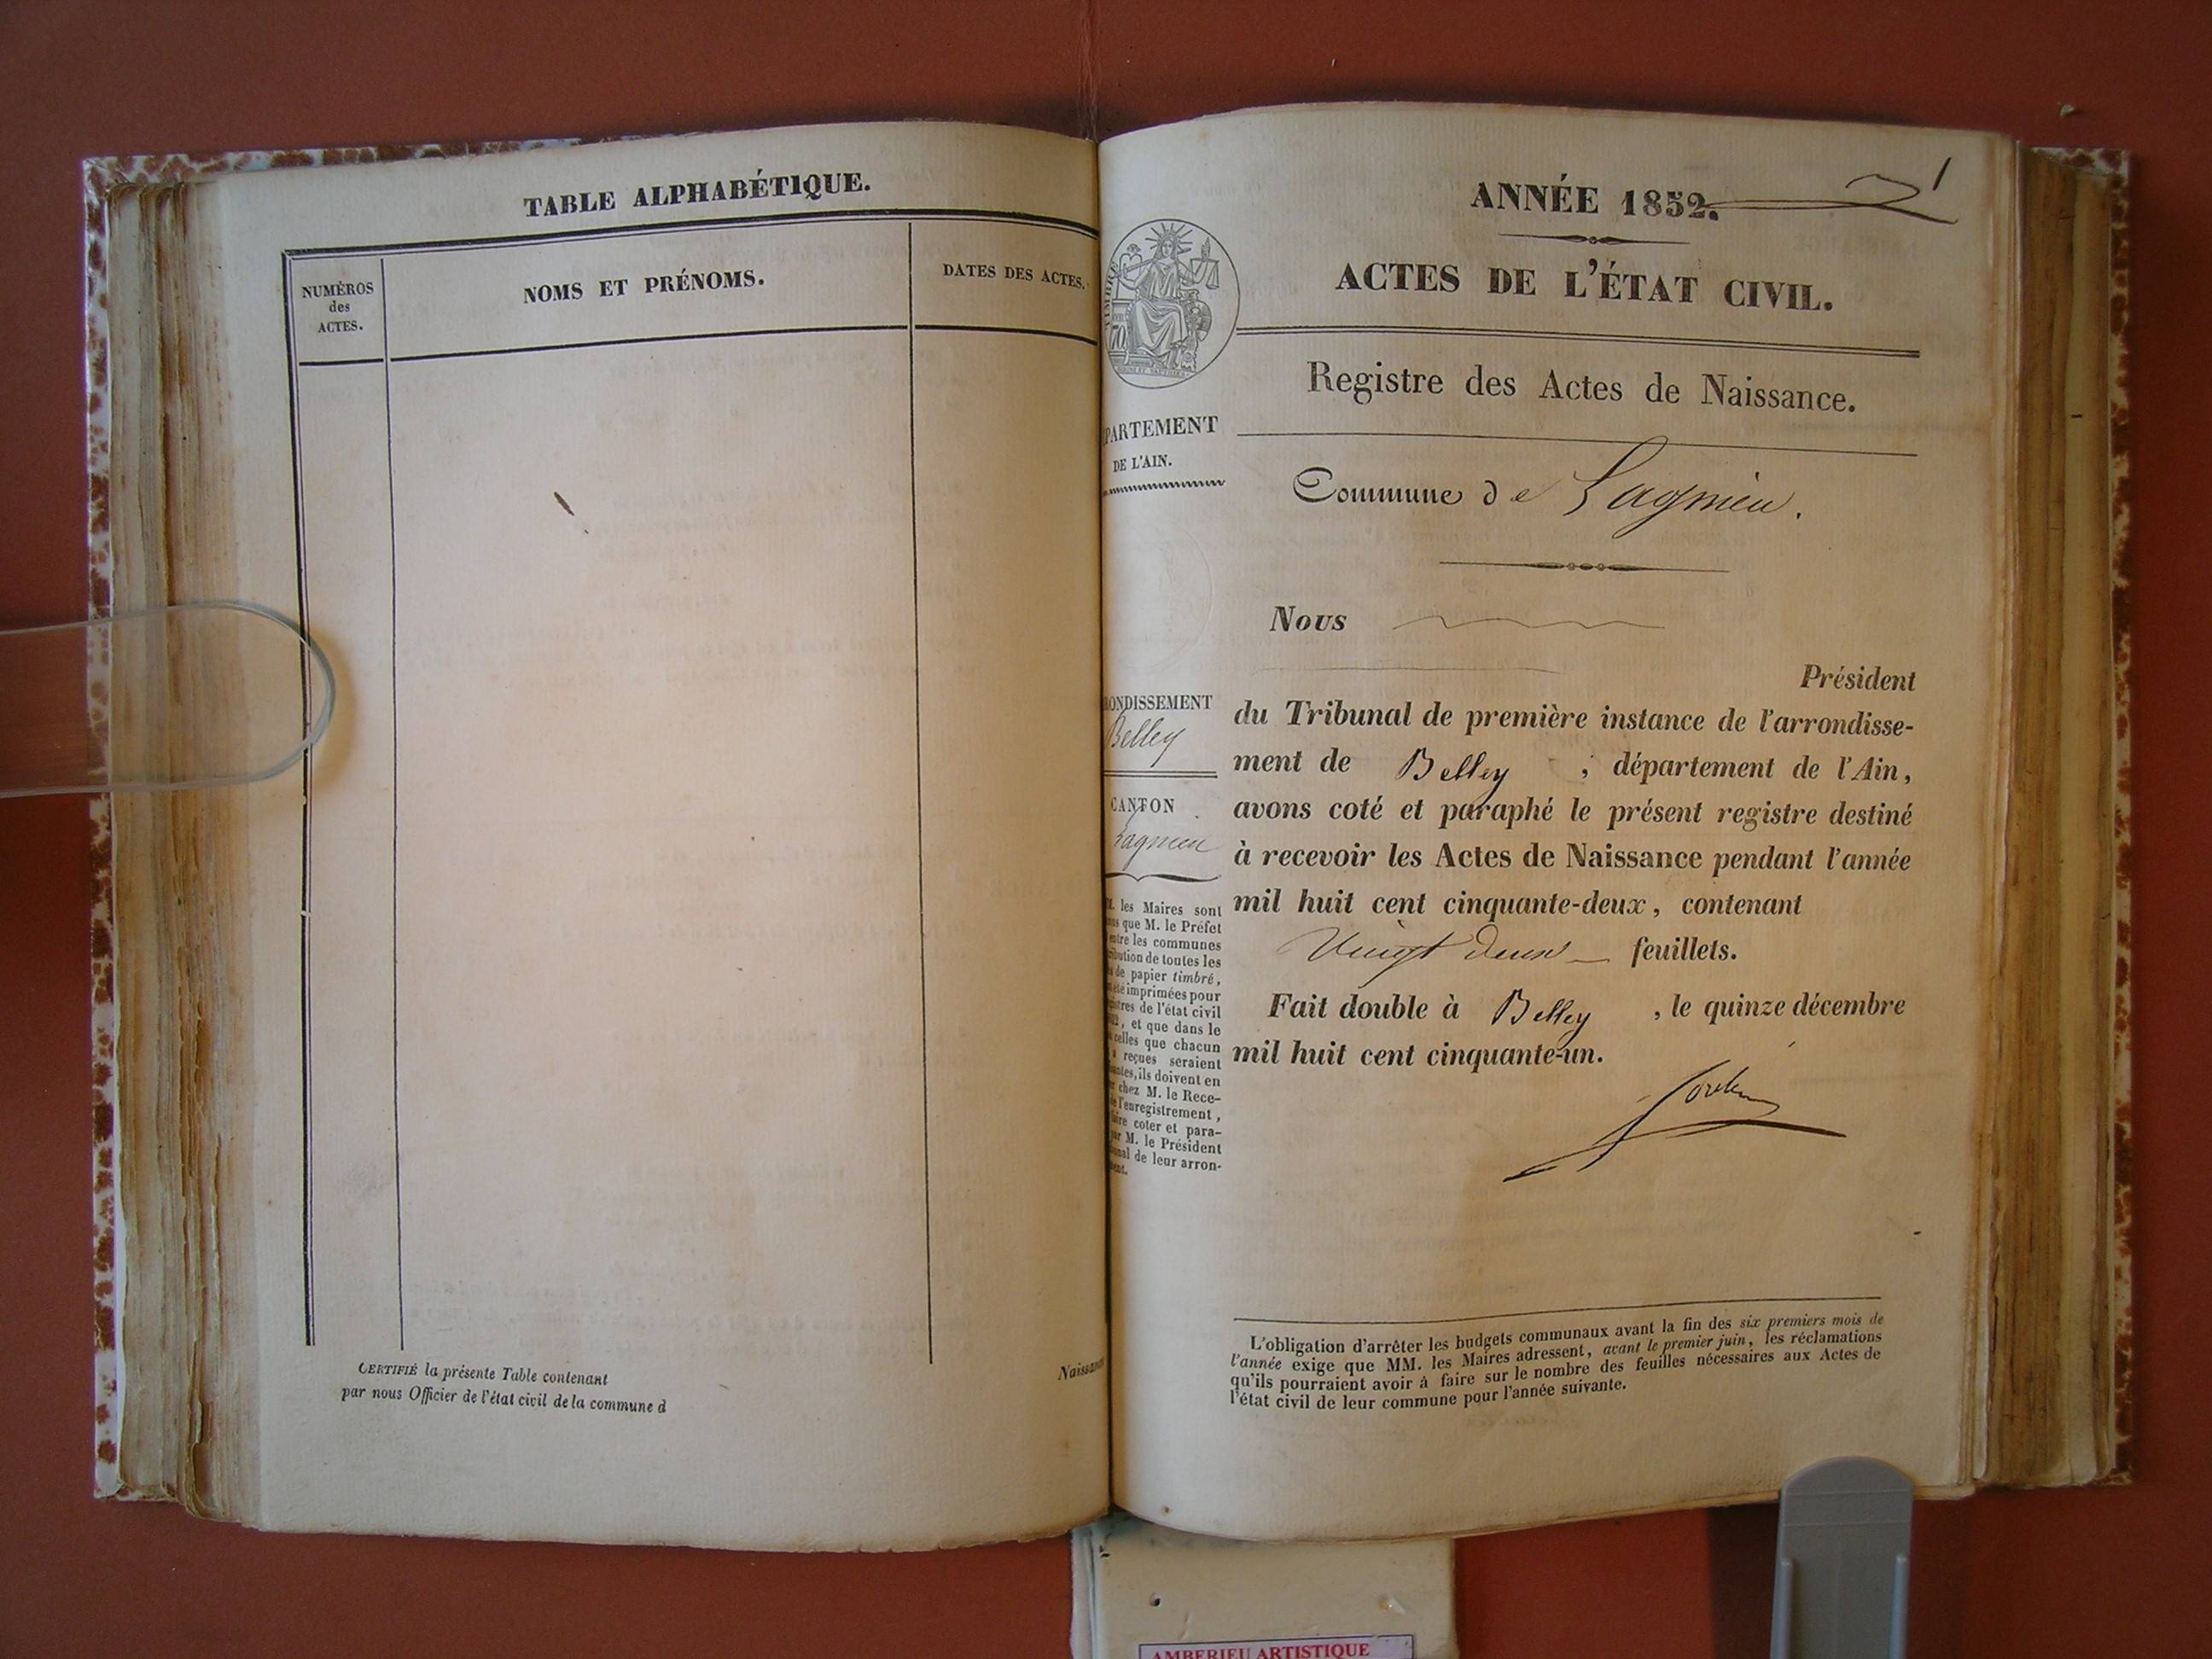 TABLE ALPHABÉTIQUE.
NUMÉROS
des
ACTES.
NOMS ET PRÉNOMS.
DATES DES ACTES.
CERTIFIÉ la présente Table contenant
par nous Officier de l'état civil de la commune d
ANNÉE 1852.
1
ACTES DE L'ÉTAT CIVIL.
Registre des Actes de Naissance.
PARTEMENT
DE L'AIN.
Commune de Lagnieu.
Nous
Président
du Tribunal de première instance de l'arrondisse-
ment de Belley ; département de l'Ain,
avons coté et paraphé le présent registre destiné
à recevoir les Actes de Naissance pendant l'année
mil huit cent cinquante-deux, contenant
Vingt deux feuillets.
Fait double à Belley , le quinze décembre
mil huit cent cinquante-un.
ONDISSEMENT
Belley
CANTON
Lagnieu
les Maires sont
que M. le Préfet
entre les communes
bution de toutes les
de papier timbré,
été imprimées pour
tres de l'état civil
, et que dans le
celles que chacun
reçues seraient
antes, ils doivent en
chez M. le Rece-
l'enregistrement,
faire coter et para-
M. le Président
nal de leur arron-
ent.
L'obligation d'arrêter les budgets communaux avant la fin des six premiers mois de
l'année exige que MM. les Maires adressent, avant le premier juin, les réclamations
qu'ils pourraient avoir à faire sur le nombre des feuilles nécessaires aux Actes de
l'état civil de leur commune pour l'année suivante.
AMBERIEU ARTISTIQUE